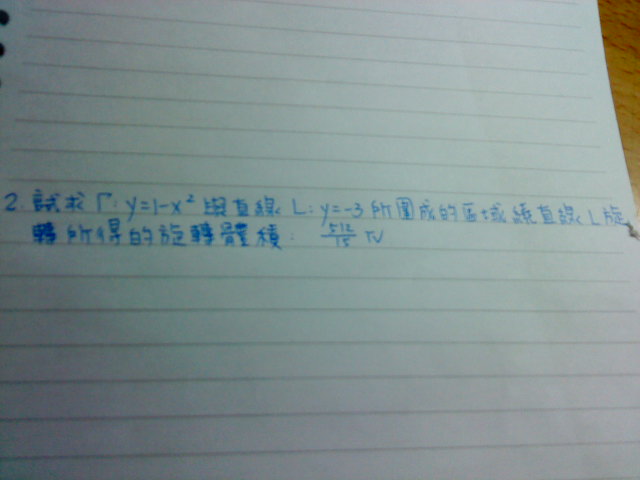 2. 試求 Γ: y=1-x² 與直線 L: y=-3 所圍成的區域繞直線 L 旋
轉所得的旋轉體積: 512/15 π